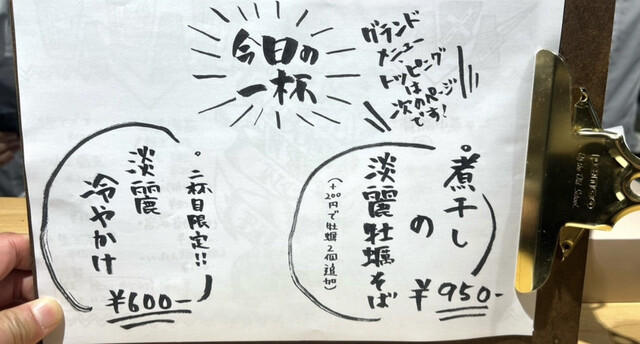 今日の
一杯
グランド
メニュー
トッピング
は次のページ
です!
・煮干し
の
淡麗牡蠣そば
(+200円で牡蠣2個追加)
¥950-
・二杯目限定!!
淡麗
冷やかけ
¥600-